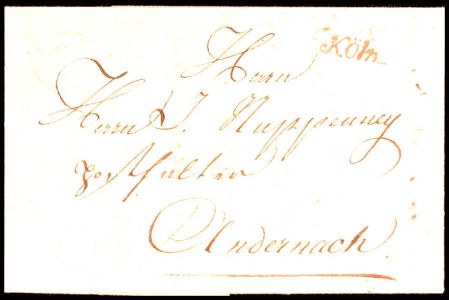 Köln
Herrn
Herrn J. Nuppeney
posthalter
Andernach